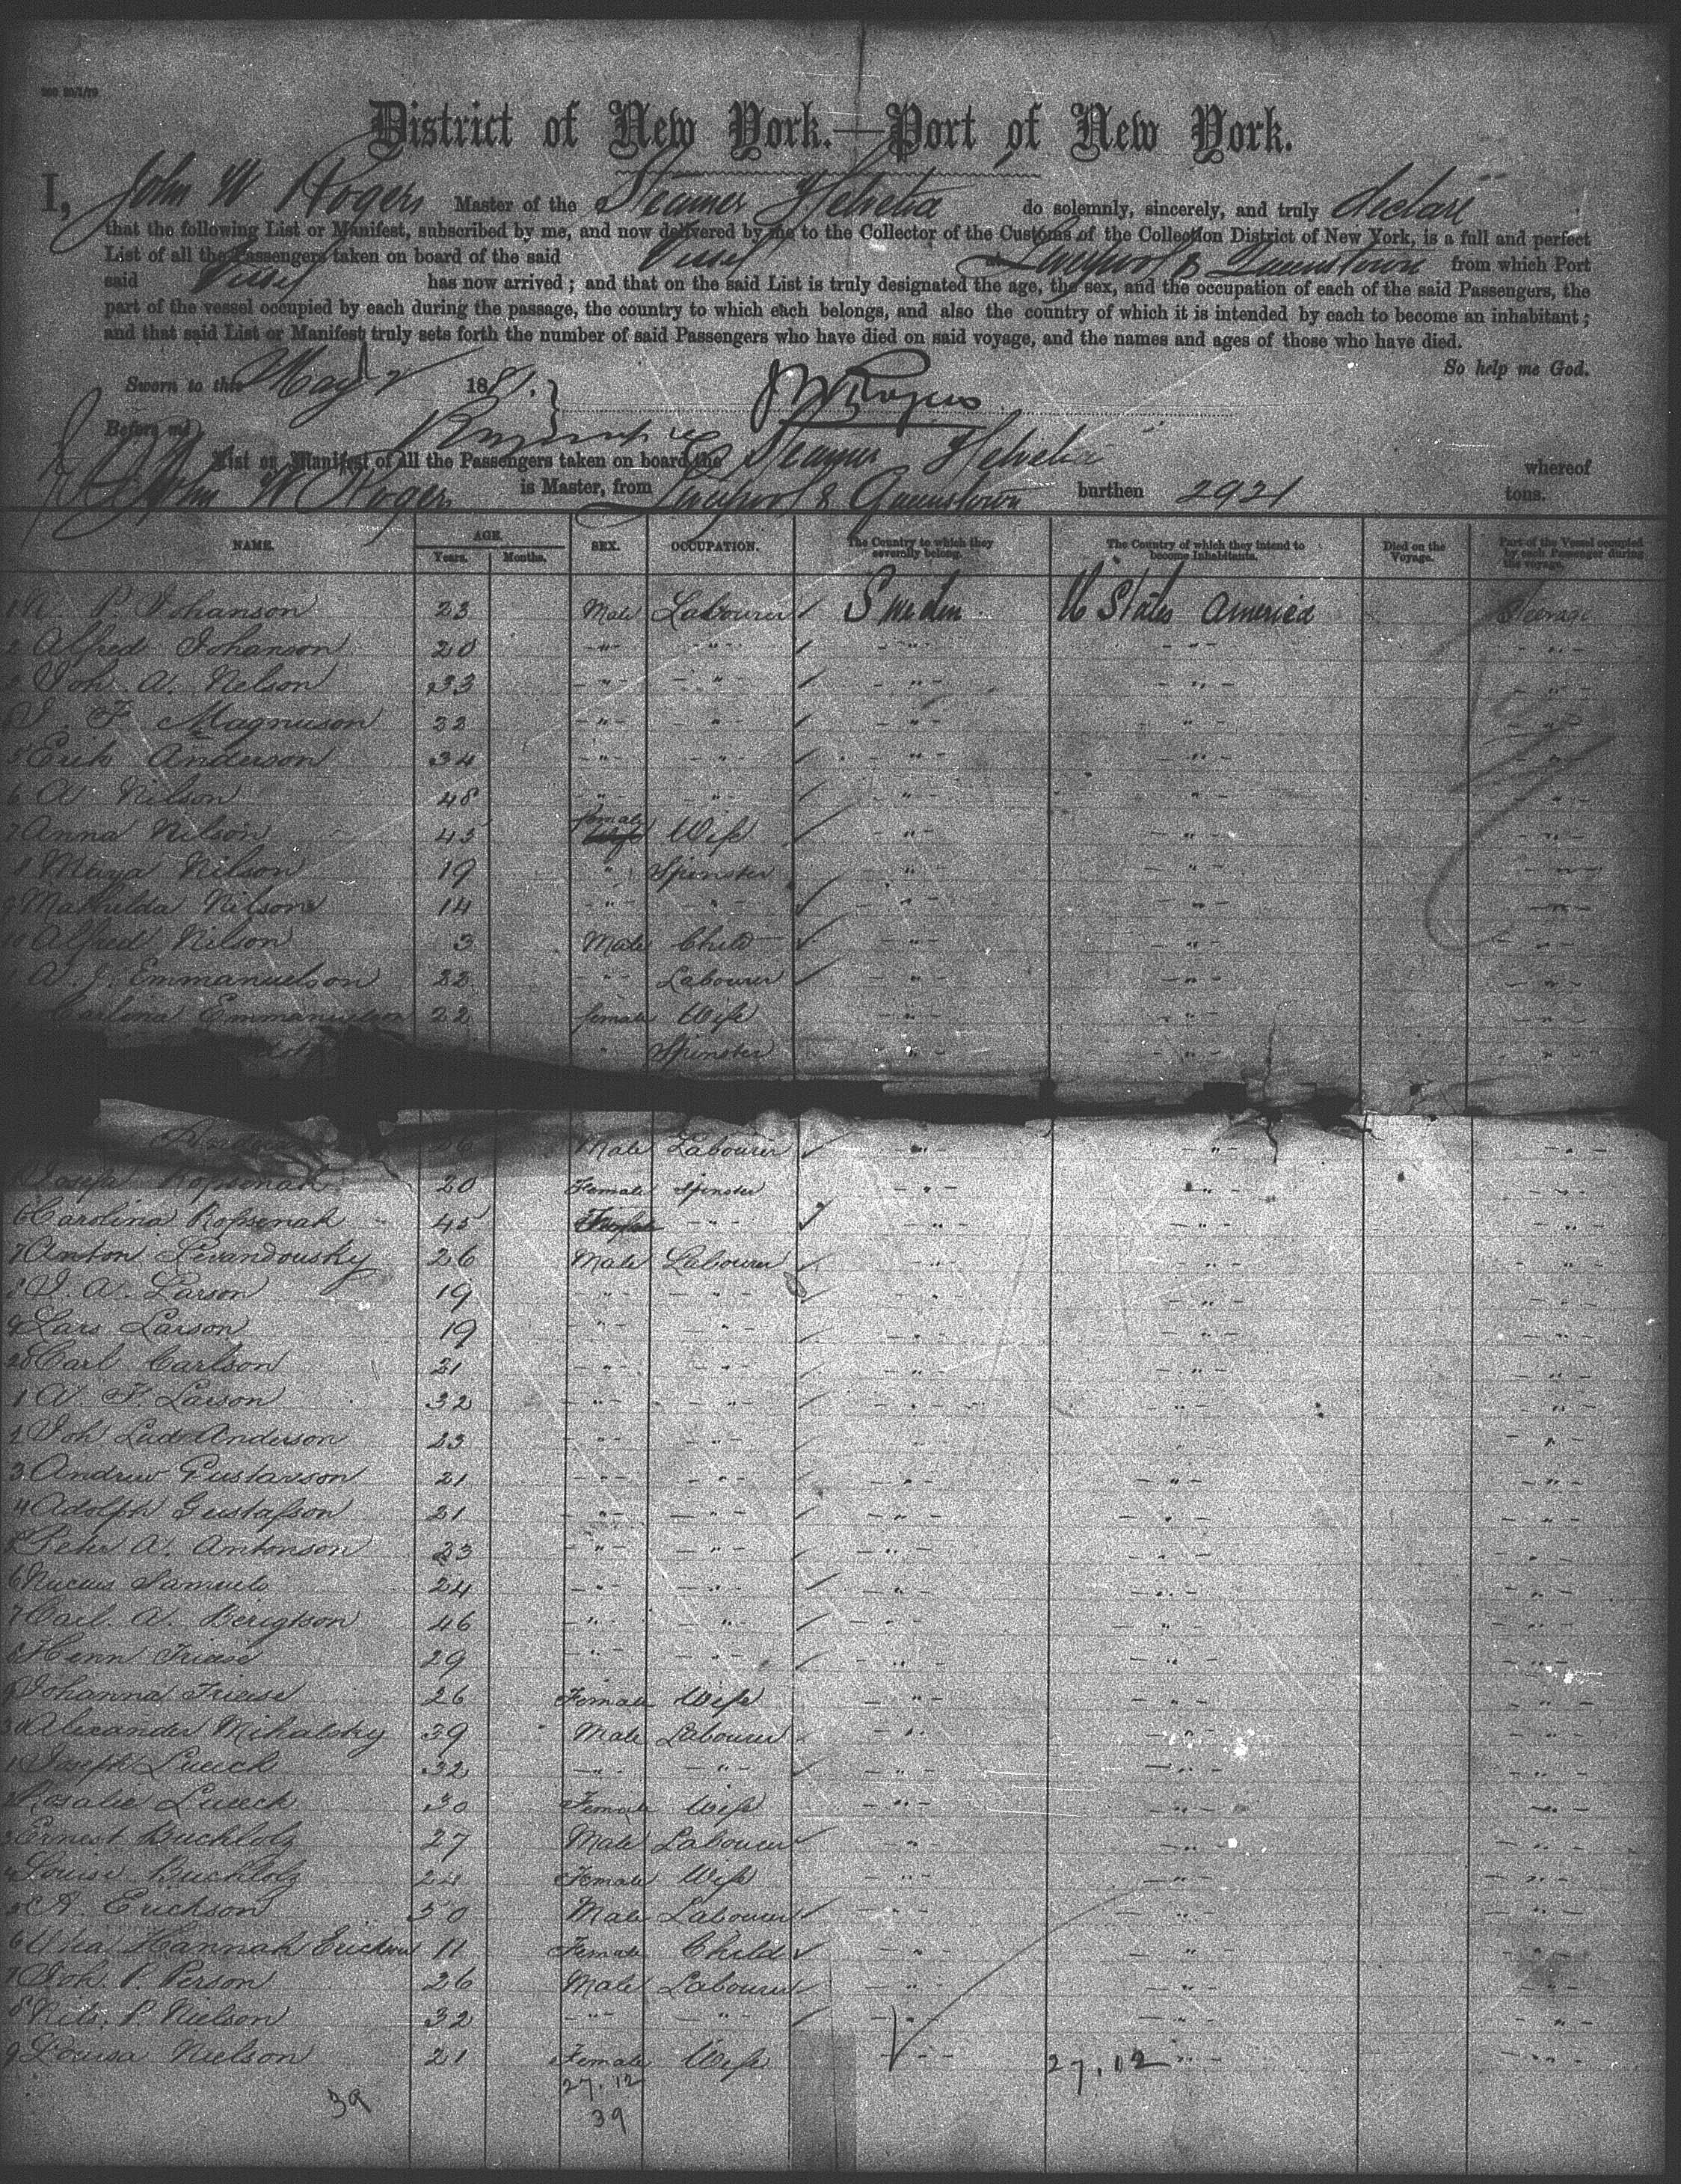 District of New York.—Port of New York.
I, John W Rogers Master of the Steamer Helvetia do solemnly, sincerely, and truly declare
that the following List or Manifest, subscribed by me, and now delivered by me to the Collector of the Customs of the Collection District of New York, is a full and perfect
List of all the Passengers taken on board of the said Vessel at Liverpool & Queenstown from which Port
said Vessel has now arrived; and that on the said List is truly designated the age, the sex, and the occupation of each of the said Passengers, the
part of the vessel occupied by each during the passage, the country to which each belongs, and also the country of which it is intended by each to become an inhabitant;
and that said List or Manifest truly sets forth the number of said Passengers who have died on said voyage, and the names and ages of those who have died.
So help me God.
Sworn to this May 2 1881. J W Rogers
Before me
List or Manifest of all the Passengers taken on board the Steamer Helvetia whereof
John W Rogers is Master, from Liverpool & Queenstown burthen 2921 tons.
NAME. AGE. Years. Months. SEX. OCCUPATION. The Country to which they severally belong. The Country of which they intend to become Inhabitants. Died on the Voyage. Part of the Vessel occupied by each Passenger during the voyage.
1 N. P. Johanson 23 Male Labourer Sweden U States America Steerage
2 Alfred Johanson 20 " " " " "
3 Joh. A. Nelson 33 " " " " "
J. F. Magnuson 22 " " " " "
5 Erik Anderson 34 " " " " "
6 A Nilson 48 " " " " "
7 Anna Nilson 45 female Wife " " "
8 Maya Nilson 19 " Spinster " " "
9 Mathilda Nilson 14 " " " " "
10 Alfred Nilson 3 Male Child " " "
1 A. J. Emmanuelson 22 " Labourer " " "
2 Carlina Emmanuelson 22 female Wife " " "
" Spinster " " "
26 Male Labourer " " "
Josefa Rossenah 20 Female Spinster " " "
6 Carolina Rossenah 45 Female " " " "
7 Anton Levandousky 26 Male Labourer " " "
8 J. A. Larson 19 " " " " "
9 Lars Larson 19 " " " " "
20 Carl Carlson 21 " " " " "
1 A. F. Larson 32 " " " " "
2 Joh Lud Anderson 23 " " " " "
3 Andrew Gustavson 21 " " " " "
4 Adolph Gustafson 21 " " " " "
5 Peter A. Antonson 23 " " " " "
6 Samuels 24 " " " " "
7 Carl. A. Berigtson 46 " " " " "
8 Henn Friese 29 " " " " "
9 Johanna Friese 26 Female Wife " " "
30 Alexander Mihalsky 39 Male Labourer " " "
1 Joseph Lueck 32 " " " " "
2 Rosalie Lueck 30 Female Wife " " "
3 Ernest Buchlolz 27 Male Labourer " " "
4 Louise Buchlolz 24 Female Wife " " "
5 A. Erickson 50 Male Labourer " " "
6 Hannah Erickson 11 Female Child " " "
7 Joh. P. Person 26 Male Labourer " " "
8 Nils. P. Nielson 32 " " " " "
9 Louisa Nielson 21 Female Wife " " "
27.12 27.12
39 39